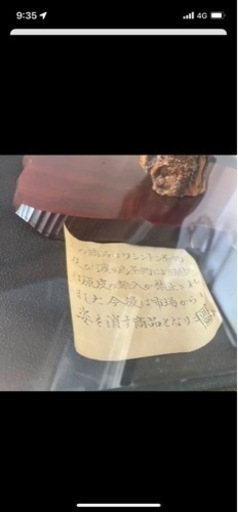 9:35
4G
商品はワシントン条約
原皮の輸入が禁止され
ました今後は市場から
姿を消す商品となりま